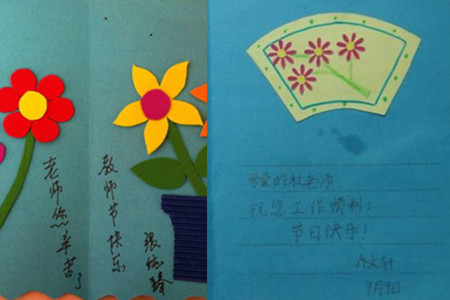 老师您辛苦了
教师节快乐
亲爱的杜老师
祝您工作顺利!
节日快乐!
9月9日